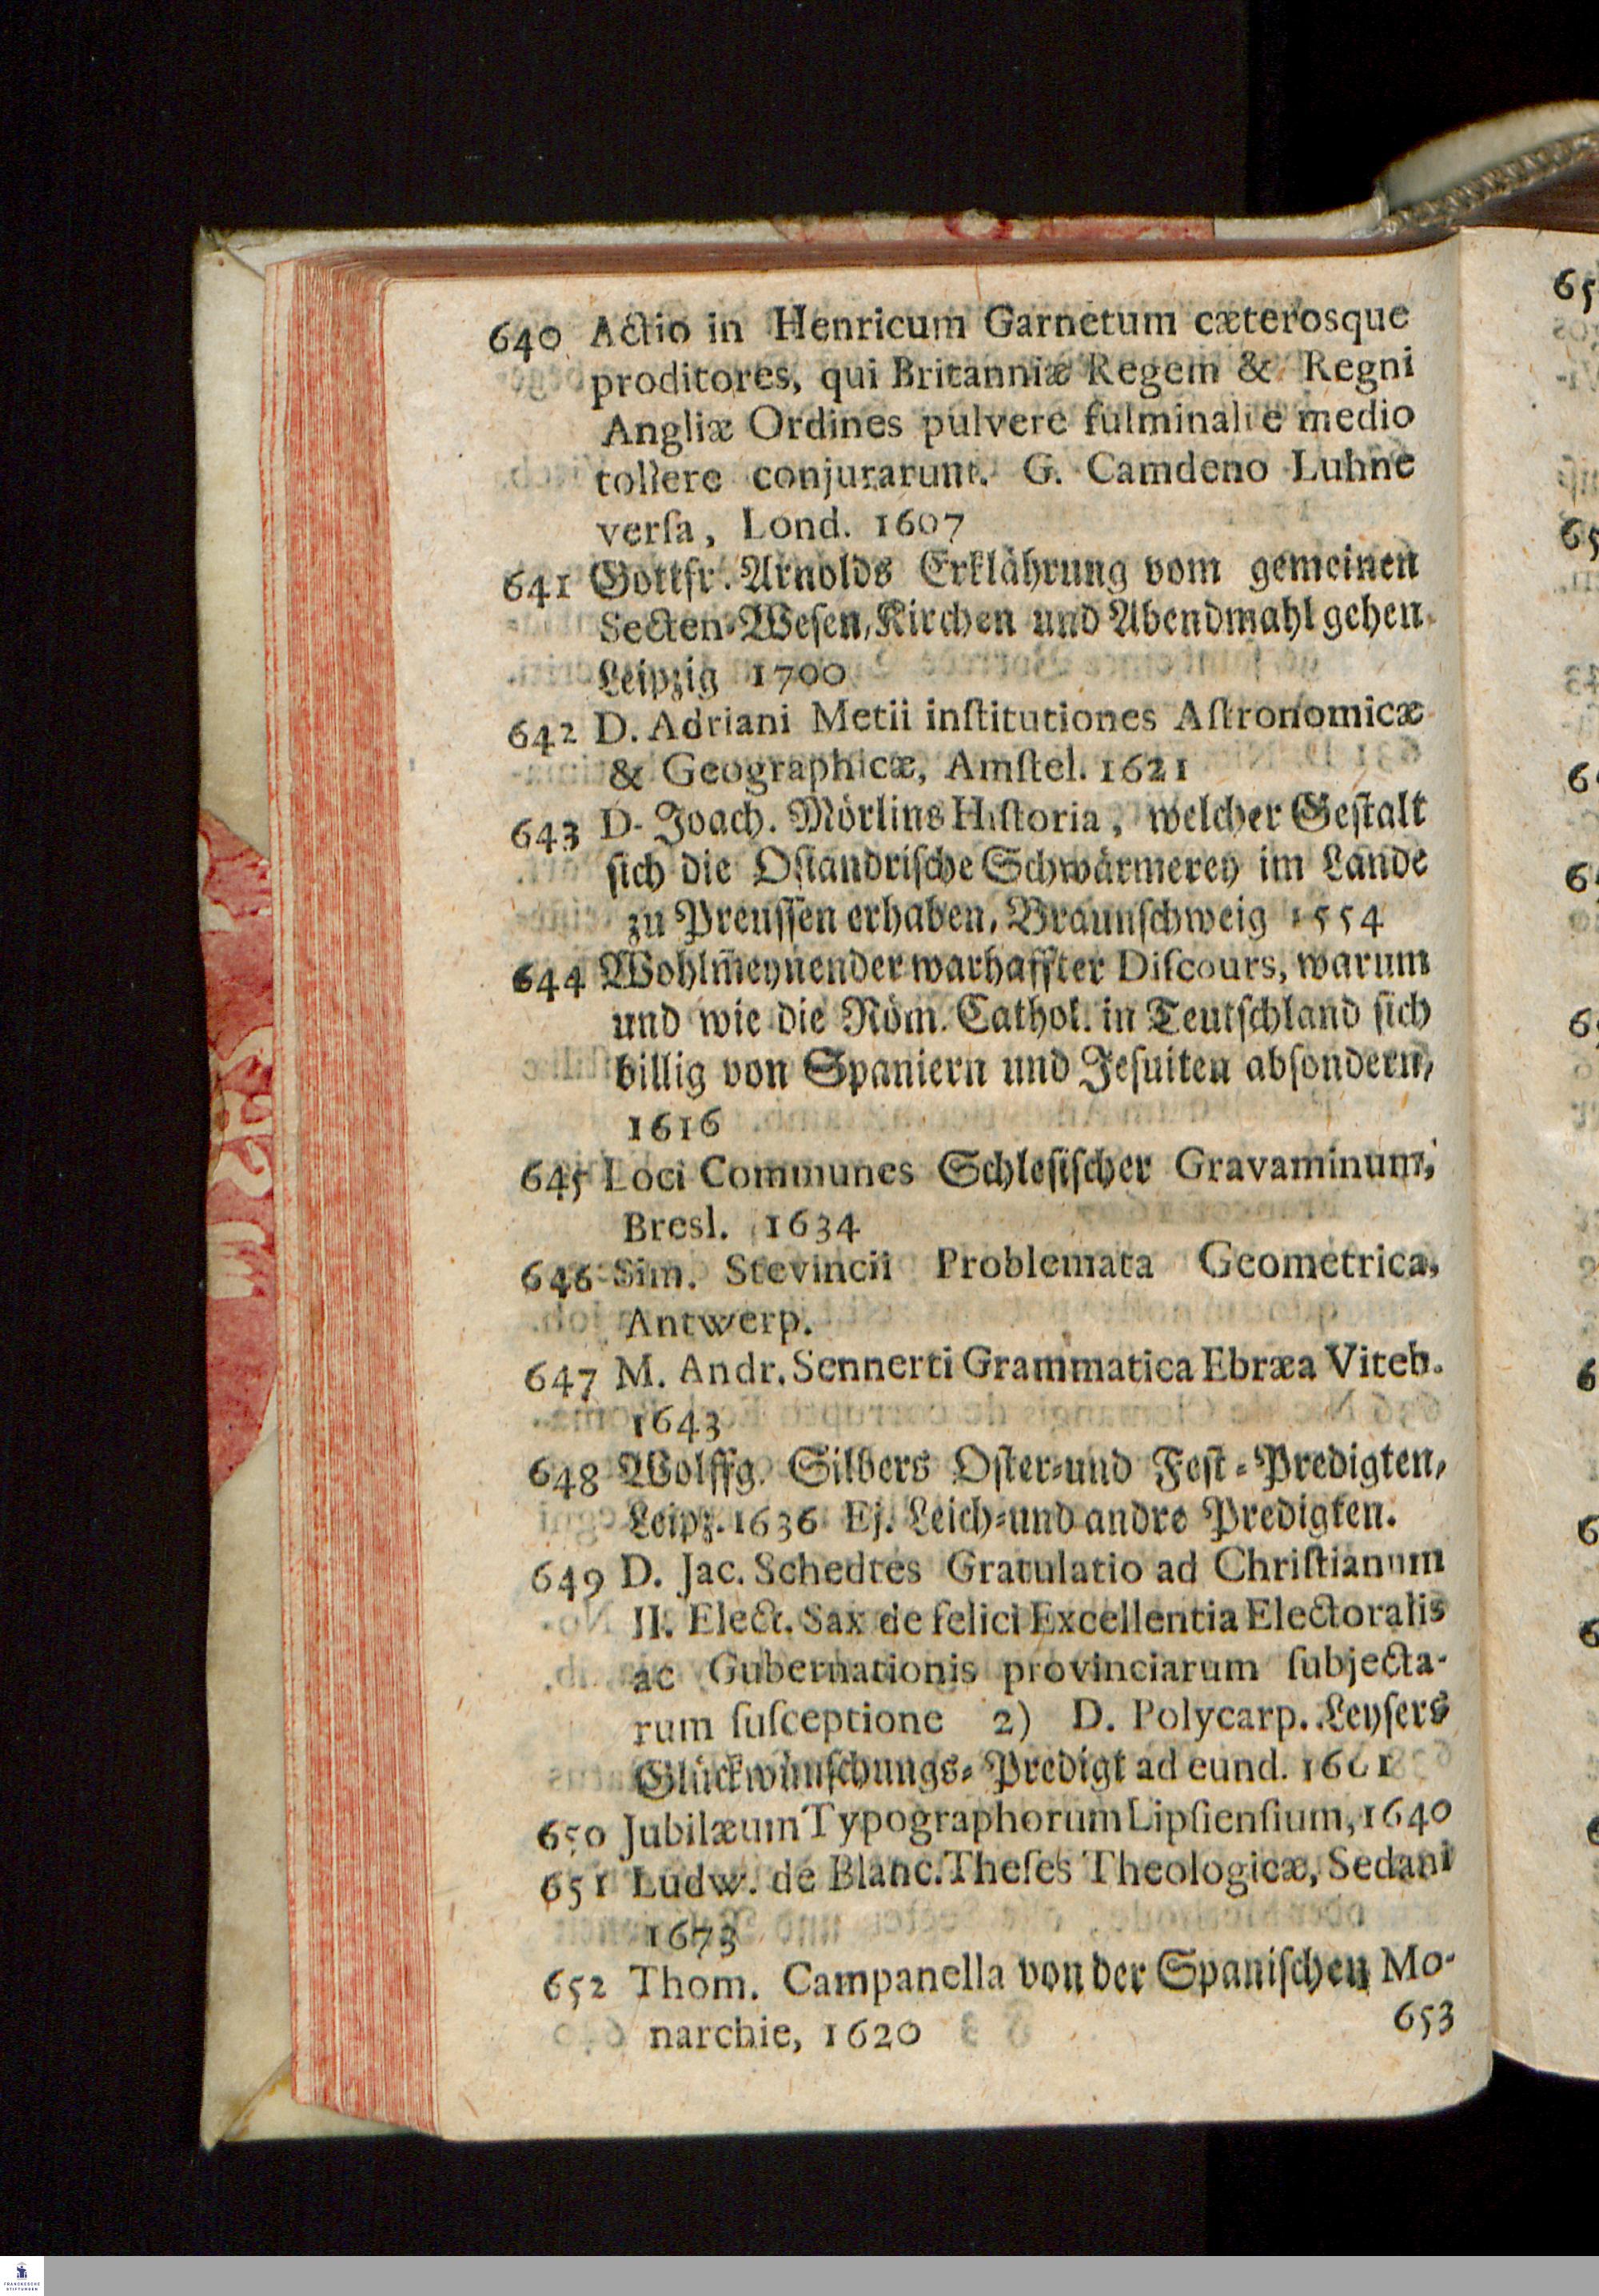 640 Actio in Henricum Garnetum cæterosque
proditores, qui Britanniæ Regem & Regni
Angliæ Ordines pulvere fulminali e medio
tollere conjurarunt. G. Camdeno Luhne
verſa, Lond. 1607
641 Gottfr. Arnolds Erklährung vom gemeinen
Secten-Weſen, Kirchen und Abendmahl gehen.
Leipzig 1700
642 D. Adriani Metii inſtitutiones Aſtronomicæ
& Geographicæ, Amſtel. 1621
643 D. Joach. Mörlins Hiſtoria, welcher Geſtalt
ſich die Oſiandriſche Schwärmerey im Lande
zu Preuſſen erhaben, Braunſchweig 1554
644 Wohlmeynender warhaffter Diſcours, warum
und wie die Röm. Cathol. in Teutſchland ſich
billig von Spaniern und Jeſuiten abſondern,
1616
645 Loci Communes Schleſiſcher Gravaminum,
Bresl. 1634
646 Sim. Stevincii Problemata Geometrica,
Antwerp.
647 M. Andr. Sennerti Grammatica Ebræa Viteb.
1643
648 Wolffg. Silbers Oſter-und Feſt-Predigten,
Leipz. 1636 Ej. Leich-und andre Predigten.
649 D. Jac. Schedtes Gratulatio ad Chriſtianum
II. Elect. Sax de felici Excellentia Electoralis
ac Gubernationis provinciarum ſubjecta-
rum ſuſceptione 2) D. Polycarp. Leyſers
Glückwünſchungs-Predigt ad eund. 1601
650 Jubilæum Typographorum Lipſienſium, 1640
651 Ludw. de Blanc. Theſes Theologicæ, Sedani
1673
652 Thom. Campanella von der Spaniſchen Mo-
narchie, 1620
653